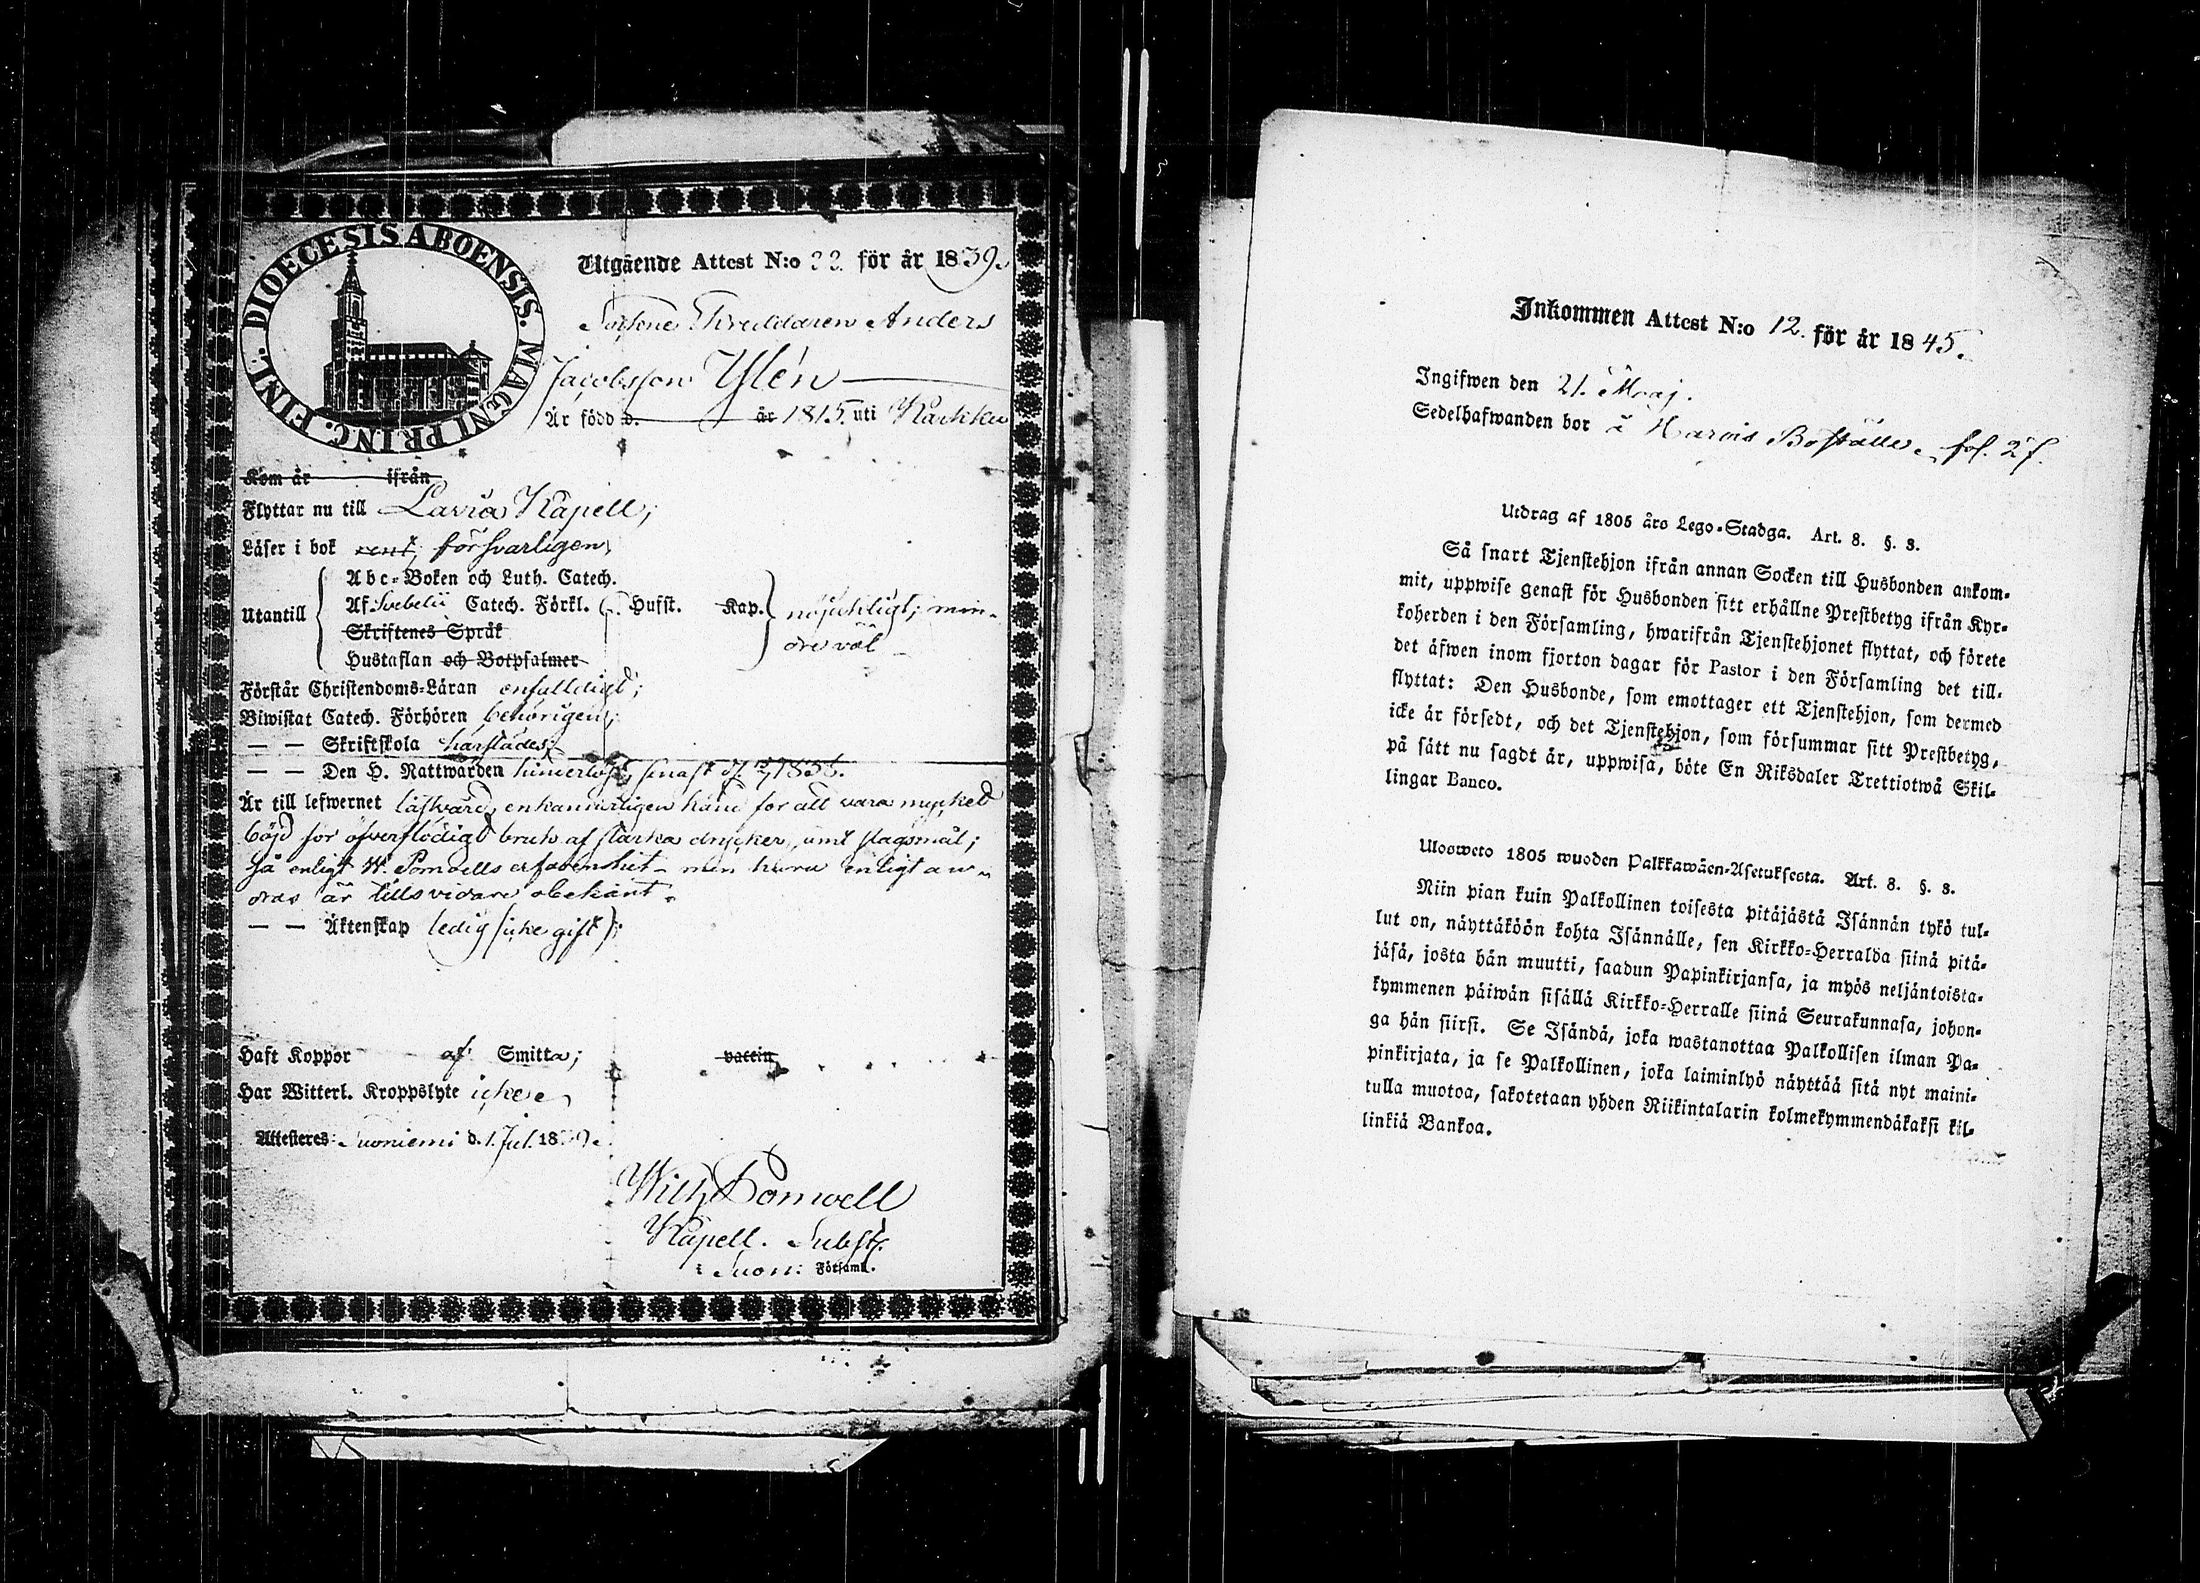 DIOECESIS ABOENSIS. MAGNI PRINC. FINL.
Utgående Attest N:o 22. för år 1839.
Sockne Skräddaren Anders
Jacobsson Ylén
Är född d. år 1815 uti Karkku
Kom år ifrån
Flyttar nu till Lavia Kapell;
Läser i bok rent, försvarligen;
Utantill
Abc-Boken och Luth. Catech.
Af Svebelii Catech. Förkl. Hufst. Kap. nöjaktligt; min-
Skriftenes Språk dre väl
Hustaflan och Botpsalmer
Förstår Christendoms-Läran enfaldigt;
Biwistat Catech. Förhören behörigen;
— — Skriftskola härstädes;
— — Den H. Nattwarden hinderlöst, senast d. 1838.
Är till lefwernet lastvärd, enkannerligen känd för att vara mycket
böjd för öfverflödigt bruk af starka drycker, samt slagsmål;
så enligt W. Pomoells erfarenhet – men huru enligt an-
dras är tillsvidare obekant.
— — Äktenskap ledig (icke gift);
Haft Koppor af Smitta; vaccin
Har Witterl. Kroppslyte ickese
Attesteres: Suoniemi d. 1. Jul. 1839.
Wilh. Pomoell
Kapell. Subst.
i Suoni: Församl.
Inkommen Attest N:o 12. för år 1845.
Ingifwen den 21. Maj.
Sedelhafwanden bor å Harois Boställe. fol. 27.
Utdrag af 1805 års Lego-Stadga. Art. 8. §. 8.
Så snart Tjenstehjon ifrån annan Socken till Husbonden ankom-
mit, uppwise genast för Husbonden sitt erhållne Prestbetyg ifrån Kyr-
koherden i den Församling, hwarifrån Tjenstehjonet flyttat, och förete
det äfwen inom fjorton dagar för Pastor i den Församling det till-
flyttat: Den Husbonde, som emottager ett Tjenstehjon, som dermed
icke är försedt, och det Tjenstehjon, som försummar sitt Prestbetyg,
på sätt nu sagdt är, uppwisa, böte En Riksdaler Trettiotwå Skil-
lingar Banco.
Uloswеto 1805 wuoden Palkkawäen-Asetuksesta. Art. 8. §. 8.
Niin pian kuin Palkollinen toisesta pitäjästä Isännän tykö tul-
lut on, näyttäköön kohta Isännälle, sen Kirkko-Herralda siinä pitä-
jäsä, josta hän muutti, saadun Papinkirjansa, ja myös neljäntoista-
kymmenen päiwän sisällä Kirkko-Herralle siinä Seurakunnasa, johon-
ga hän siirsi. Se Isändä, joka wastanottaa Palkollisen ilman Pa-
pinkirjata, ja se Palkollinen, joka laiminlyö näyttää sitä nyt maini-
tulla muotoa, sakotetaan yhden Riikintalarin kolmekymmendäkaksi kil-
linkiä Bankoa.